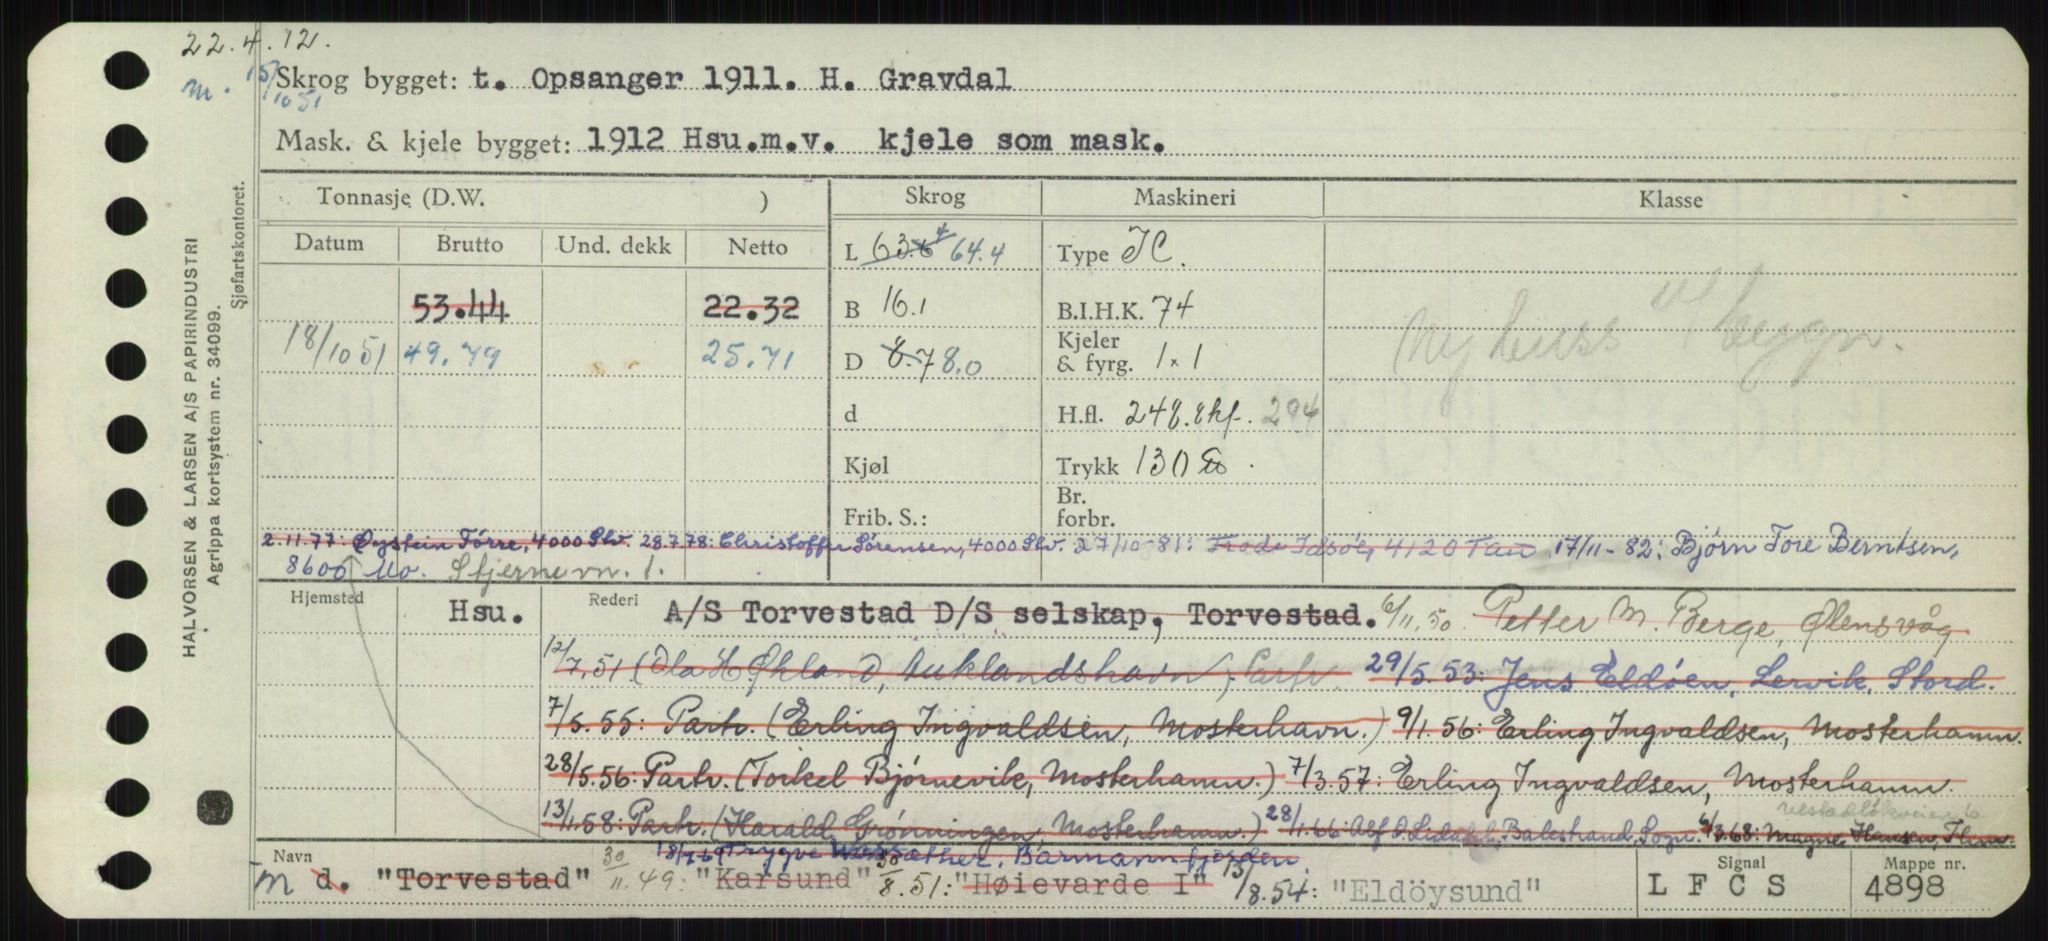 22.4.12.
m. 15/10 51
Skrog bygget: t. Opsanger 1911. H. Gravdal
Mask. & kjele bygget: 1912 Hsu.m.v. kjele som mask.
HALVORSEN & LARSEN A/S PAPIRINDUSTRI
Agrippa kortsystem nr. 34099.
Sjøfartskontoret.
Tonnasje (D.W. ) Skrog Maskineri Klasse
Datum Brutto Und. dekk Netto L 63.6 64.4 Type IC.
53.44 22.32 B 16.1 B.I.H.K. 74
18/10 51 49.79 25.71 D 8.7 8.0 Kjeler & fyrg. 1 x 1
d H.fl. 248. ekf. 294
Kjøl Trykk 130
Frib. S.: Br. forbr.
2.11.77: Øystein Tørre, 4000 Stv. 28.7.78: Christoffer Sørensen, 4000 Stv. 27/10-81: Frode Idsøe, 4120 Tau 17/11-82: Bjørn Tore Berntsen,
8600 Mo. Stjernevn. 1.
Hjemsted Hsu. Rederi A/S Torvestad D/S selskap, Torvestad. 6/11.50 Petter M. Berge, Ølensvåg
12/7.51 (Ola H. Økland, Auklandshavn) Partr. 29/5.53: Jens Eldøen, Lervik, Stord.
7/5.55: Partr. (Erling Ingvaldsen, Mosterhavn.) 9/1.56: Erling Ingvaldsen, Mosterhamn.
28/5.56: Partr. (Torkel Bjørnevik, Mosterhamn.) 7/3.57: Erling Ingvaldsen, Mosterhamn.
13/1.58: Partr. (Harald Grønningen, Mosterhamn.) 28/1.66: Alf Balestrand, Sogn. 6/3.68: Magne Hansen,
18/7-69 Trygve
Navn m d. "Torvestad" 30/11.49: "Karsund" 30/8.51: "Høievarde I" 13/8.54: "Eldöysund"
Signal LFCS
Mappe nr. 4898